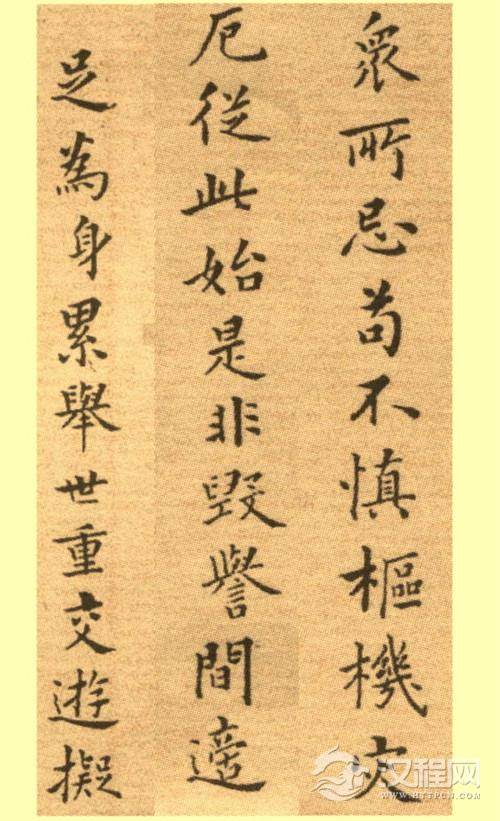 眾所忌苟不慎樞機灾
厄從此始是非毀譽間適
足為身累舉世重交遊擬
汉程网
WWW.HTTPCN.COM